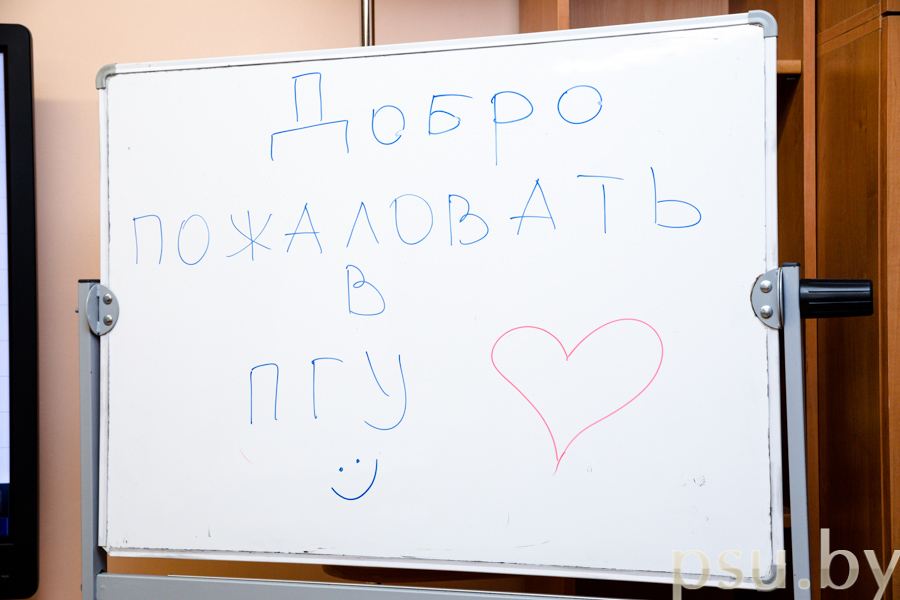 Добро
ПОЖАЛОВАТЬ
В
ПГУ
psu.by